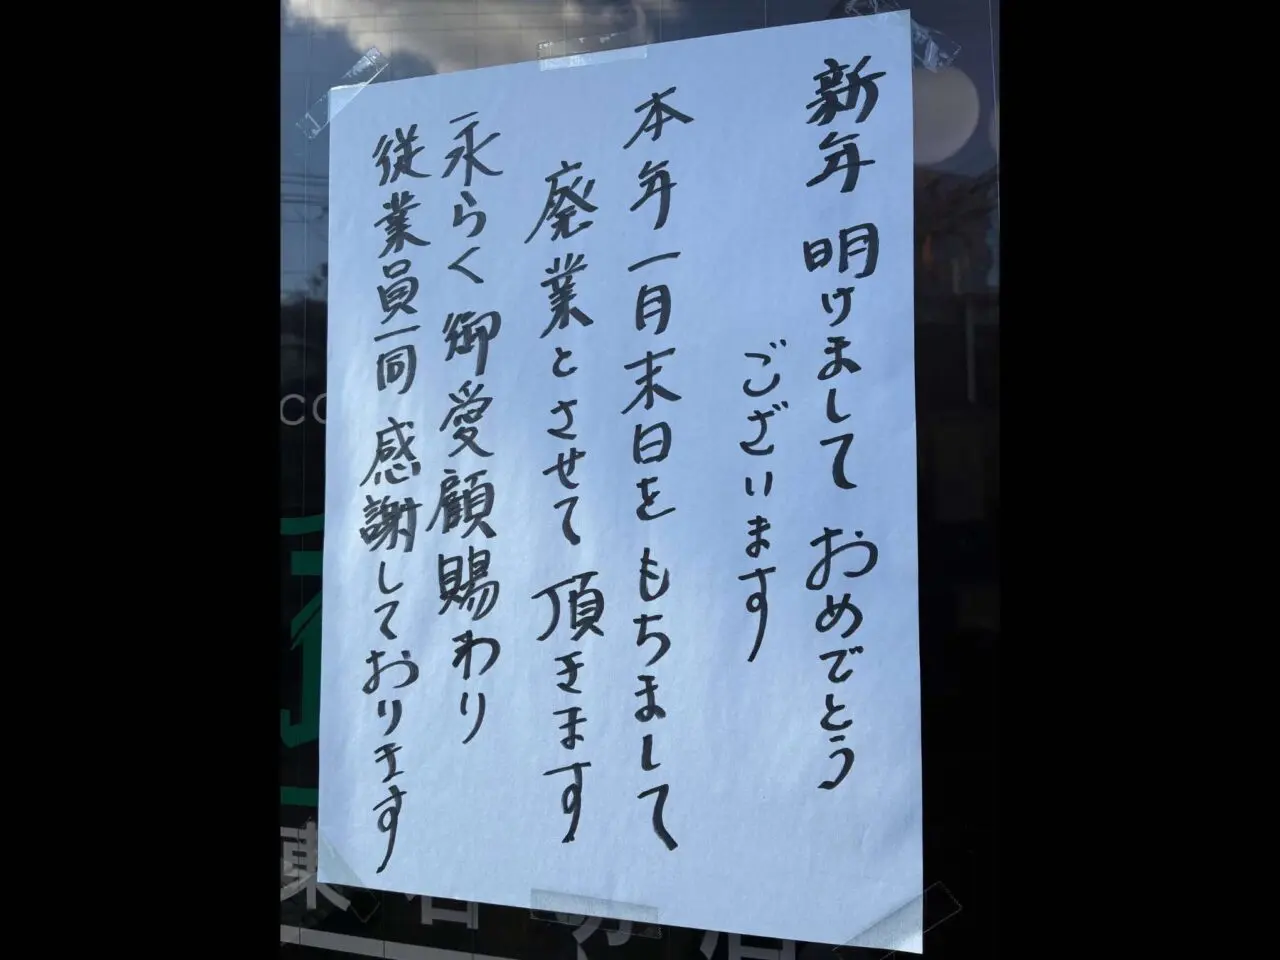 新年 明けまして おめでとう
ございます
本年一月末日をもちまして
廃業とさせて頂きます
永らく御愛顧賜わり
従業員一同感謝しております
CO
東